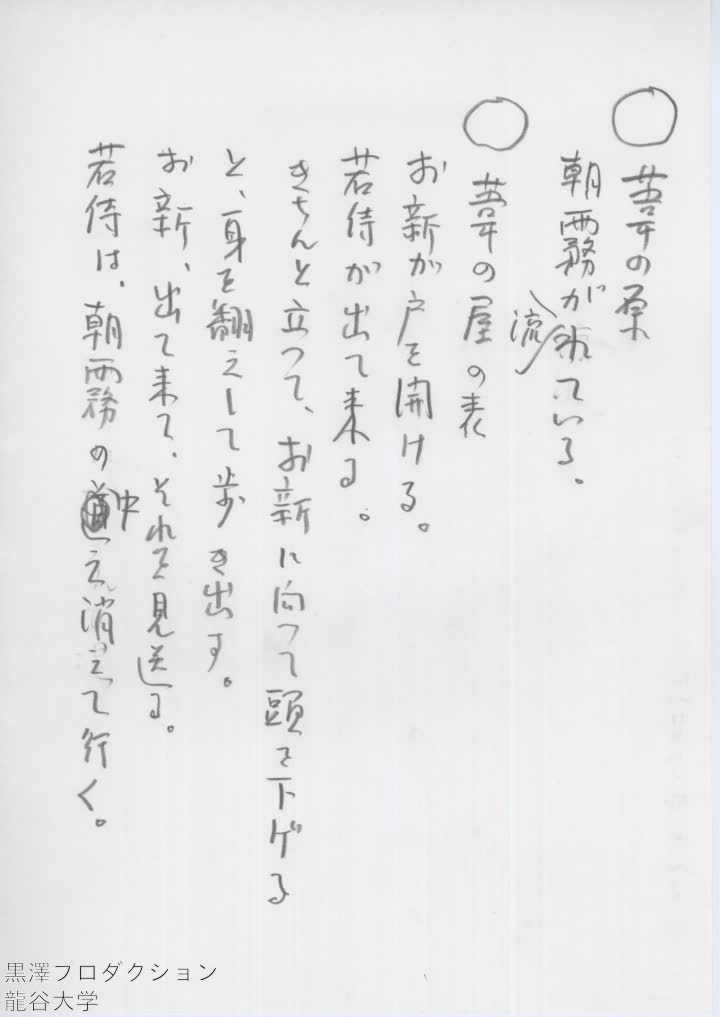 ○ 葦の原
朝霧が流れている。
○ 葦の屋の表
お新が戸を開ける。
若侍が出て来る。
きちんと立つて、お新に向つて頭を下げる
と、身を翻えして歩き出す。
お新、出て来て、それを見送る。
若侍は、朝霧の中え消えて行く。
黒澤プロダクション
龍谷大学